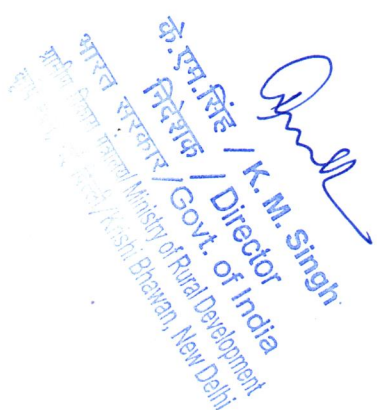 के.एम.सिंह / K. M. Singh
निदेशक / Director
भारत सरकार / Govt. of India
ग्रामीण विकास मंत्रालय/ Ministry of Rural Development
/Krishi Bhawan, New Delhi